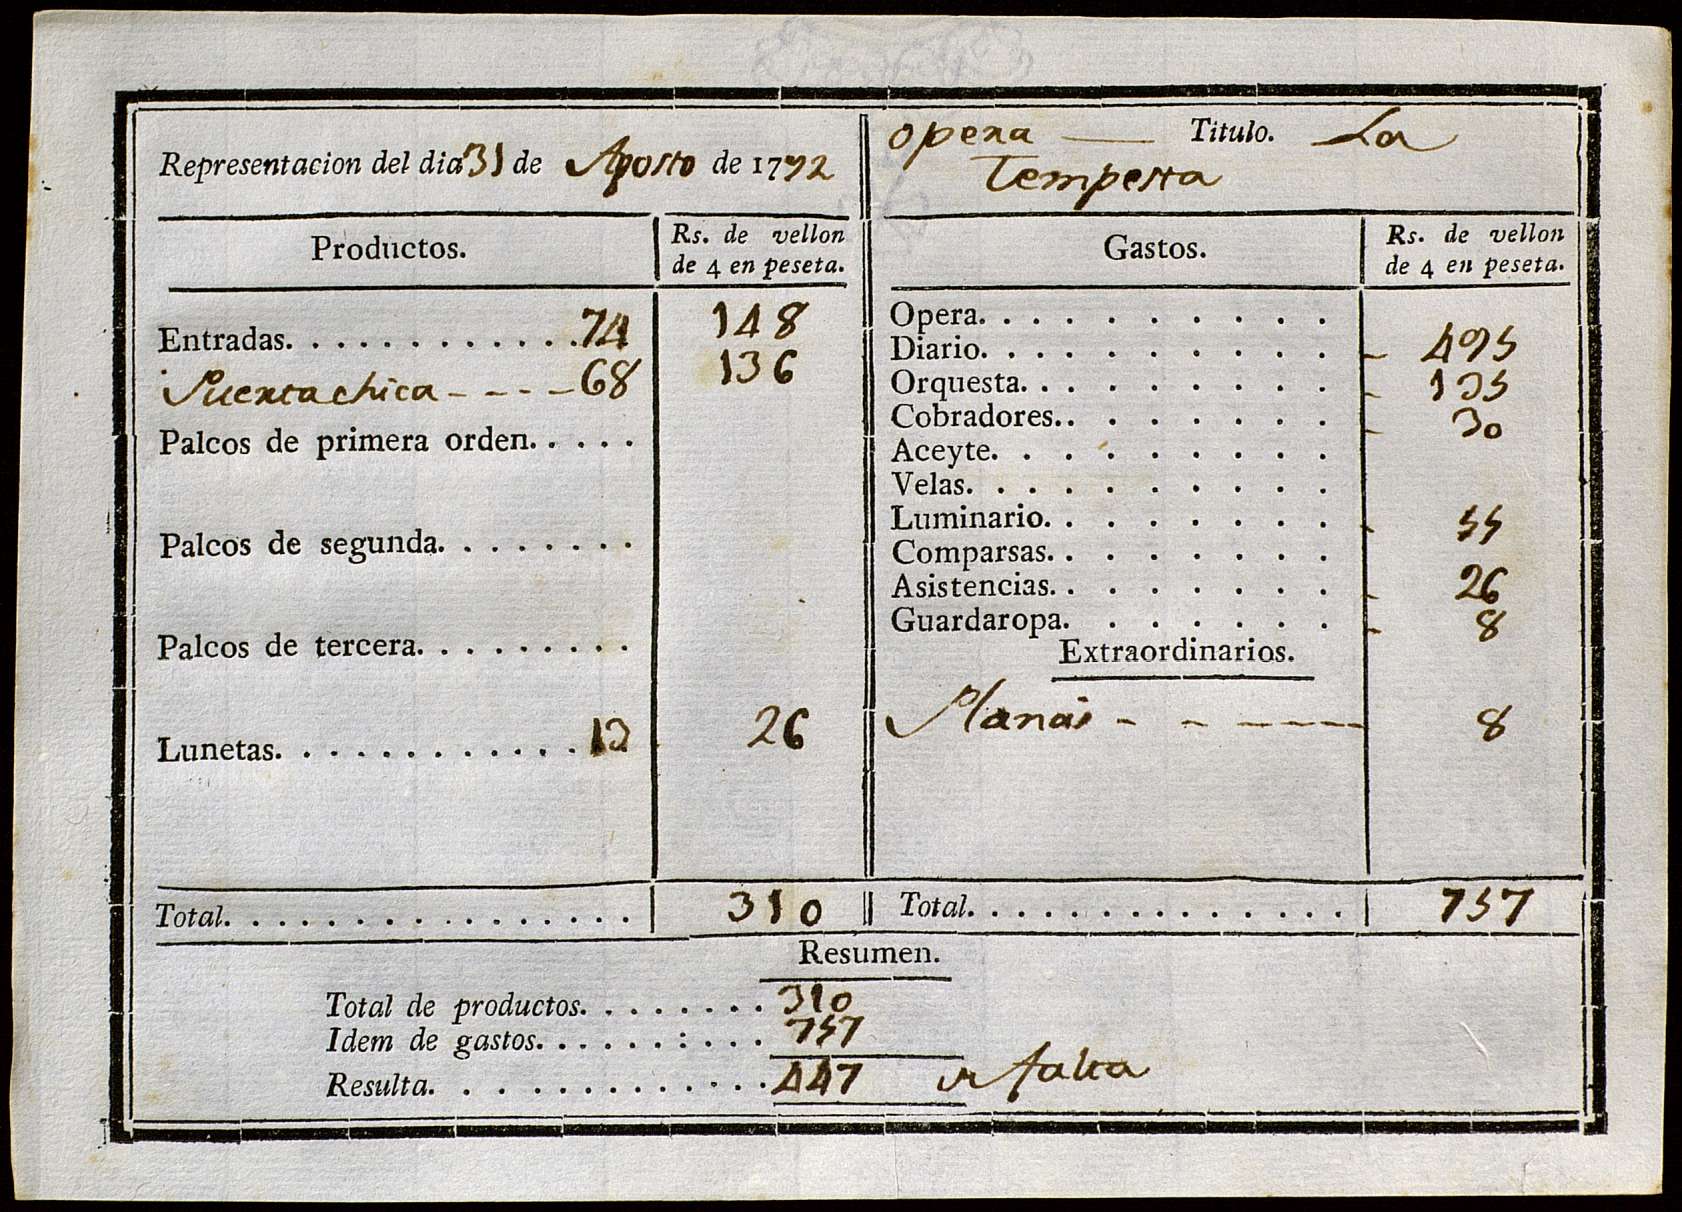 Representacion del dia 31 de Agosto de 1792
opera — Titulo. La
Tempesta
Productos.
Rs. de vellon
de 4 en peseta.
Entradas. . . . . . . . . . . . 74 148
Puerta chica - - - - 68 136
Palcos de primera orden. . . . .
Palcos de segunda. . . . . . . .
Palcos de tercera. . . . . . . . .
Lunetas. . . . . . . . . . . . 13 26
Total. . . . . . . . . . . . . . . . 310
Gastos.
Rs. de vellon
de 4 en peseta.
Opera. . . . . . . . . .
Diario. . . . . . . . . . - 495
Orquesta. . . . . . . . . - 135
Cobradores. . . . . . . . - 30
Aceyte. . . . . . . . . .
Velas. . . . . . . . . . .
Luminario. . . . . . . . - 55
Comparsas. . . . . . . .
Asistencias. . . . . . . . - 26
Guardaropa. . . . . . . - 8
Extraordinarios.
Planas - - - - - - 8
Total. . . . . . . . . . . . . . 757
Resumen.
Total de productos. . . . . . . . 310
Idem de gastos. . . . . . : . . . 757
Resulta. . . . . . . . . . . . . 447 falta